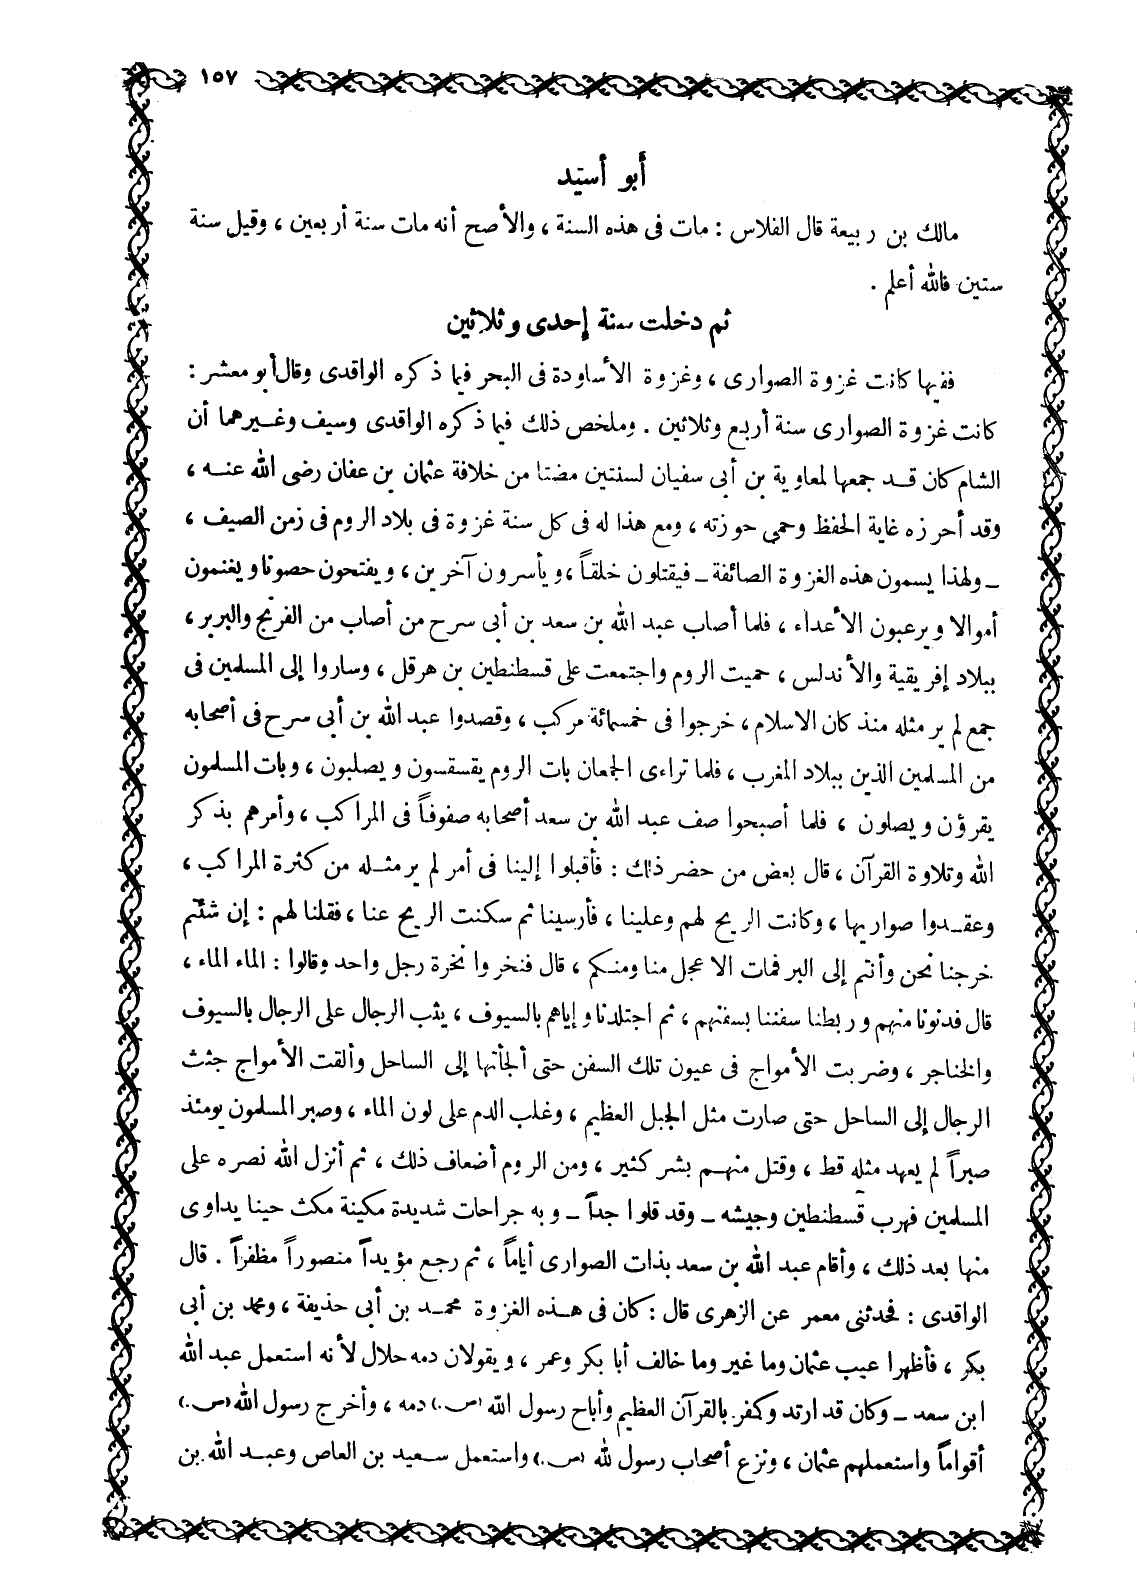 ١٥٧
أبو أسيد
مالك بن ربيعة قال الفلاس : مات فى هذه السنة ، والأصح أنه مات سنة أربعين ، وقيل سنة
ستين فالله أعلم .
ثم دخلت سنة إحدى وثلاثين
ففيها كانت غزوة الصوارى ، وغزوة الأساودة فى البحر فيما ذكره الواقدى وقال أبو معشر :
كانت غزوة الصوارى سنة أربع وثلاثين . وملخص ذلك فيما ذكره الواقدى وسيف وغيرهما أن
الشام كان قد جمعها لمعاوية بن أبى سفيان لسنتين مضتا من خلافة عثمان بن عفان رضى الله عنه ،
وقد أحرزه غاية الحفظ وحمى حوزته ، ومع هذا له فى كل سنة غزوة فى بلاد الروم فى زمن الصيف ،
ـ ولهذا يسمون هذه الغزوة الصائفة ـ فيقتلون خلقاً ، ويأسرون آخرين ، ويفتحون حصونا ويغنمون
أموالا ويرعبون الأعداء ، فلما أصاب عبد الله بن سعد بن أبى سرح من أصاب من الفرنج والبربر ،
ببلاد إفريقية والأندلس ، حميت الروم واجتمعت على قسطنطين بن هرقل ، وساروا إلى المسلمين فى
جمع لم ير مثله منذ كان الاسلام ، خرجوا فى خمسمائة مركب ، وقصدوا عبد الله بن أبى سرح فى أصحابه
من المسلمين الذين ببلاد المغرب ، فلما تراءى الجمعان بات الروم يقسقسون ويصلبون ، وبات المسلمون
يقرؤن ويصلون ، فلما أصبحوا صف عبد الله بن سعد أصحابه صفوفاً فى المراكب ، وأمرهم بذكر
الله وتلاوة القرآن ، قال بعض من حضر ذلك : فأقبلوا إلينا فى أمر لم ير مثله من كثرة المراكب ،
وعقدوا صواريها ، وكانت الريح لهم وعلينا ، فأرسينا ثم سكنت الريح عنا ، فقلنا لهم : إن شئتم
خرجنا نحن وأنتم إلى البر فمات الاعجل منا ومنكم ، قال فنخروا نخرة رجل واحد وقالوا : الماء الماء ،
قال فدنونا منهم وربطنا سفننا بسفنهم ، ثم اجتلدنا وإياهم بالسيوف ، يثب الرجال على الرجال بالسيوف
والخناجر ، وضربت الأمواج فى عيون تلك السفن حتى ألجأتها إلى الساحل وألقت الأمواج جثث
الرجال إلى الساحل حتى صارت مثل الجبل العظيم ، وغلب الدم على لون الماء ، وصبر المسلمون يومئذ
صبراً لم يعهد مثله قط ، وقتل منهم بشر كثير ، ومن الروم أضعاف ذلك ، ثم أنزل الله نصره على
المسلمين فهرب قسطنطين وجيشه ـ وقد قلوا جداً ـ وبه جراحات شديدة مكينة مكث حينا يداوى
منها بعد ذلك ، وأقام عبد الله بن سعد بذات الصوارى أياماً ، ثم رجع مؤيداً منصوراً مظفراً . قال
الواقدى : فحدثنى معمر عن الزهرى قال : كان فى هذه الغزوة محمد بن أبى حذيفة ، ومحمد بن أبى
بكر ، فأظهرا عيب عثمان وما غير وما خالف أبا بكر وعمر ، ويقولان دمه حلال لأنه استعمل عبد الله
ابن سعد ـ وكان قد ارتد وكفر بالقرآن العظيم وأباح رسول الله (ص.) دمه ، وأخرج رسول الله (ص.)
أقواماً واستعملهم عثمان ، ونزع أصحاب رسول لله (ص.) واستعمل سعيد بن العاص وعبد الله بن